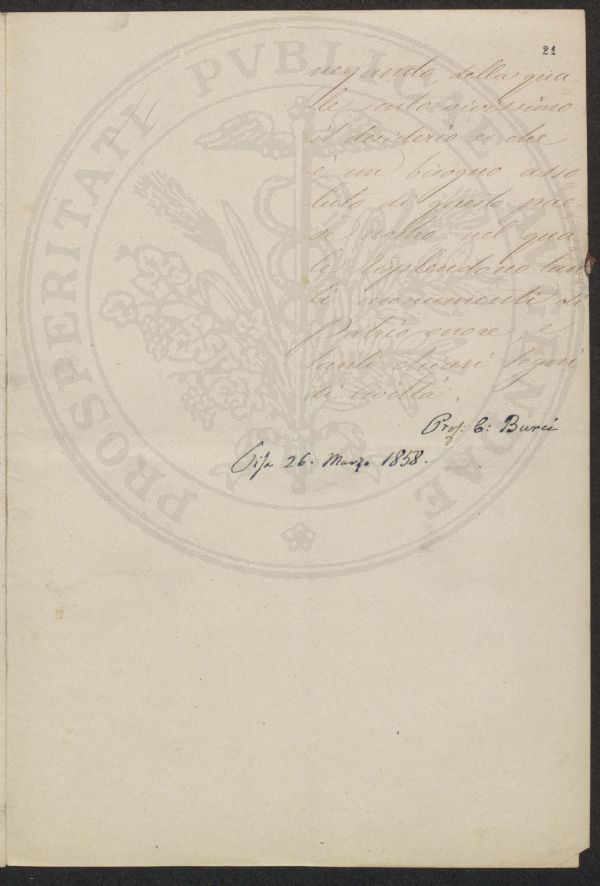 21
della qua-
le sento vivissimo
il desiderio e che
è un bisogno asso
luto di questo pae-
se nostro nel qua
le risplendono tan
ti monumenti di
Patrio onore e
tanti chiari segni
di Civiltà.
Prof: C: Burci
Pisa 26. Marzo 1858.
PROSPERITATI PVBLICAE AVGENDAE